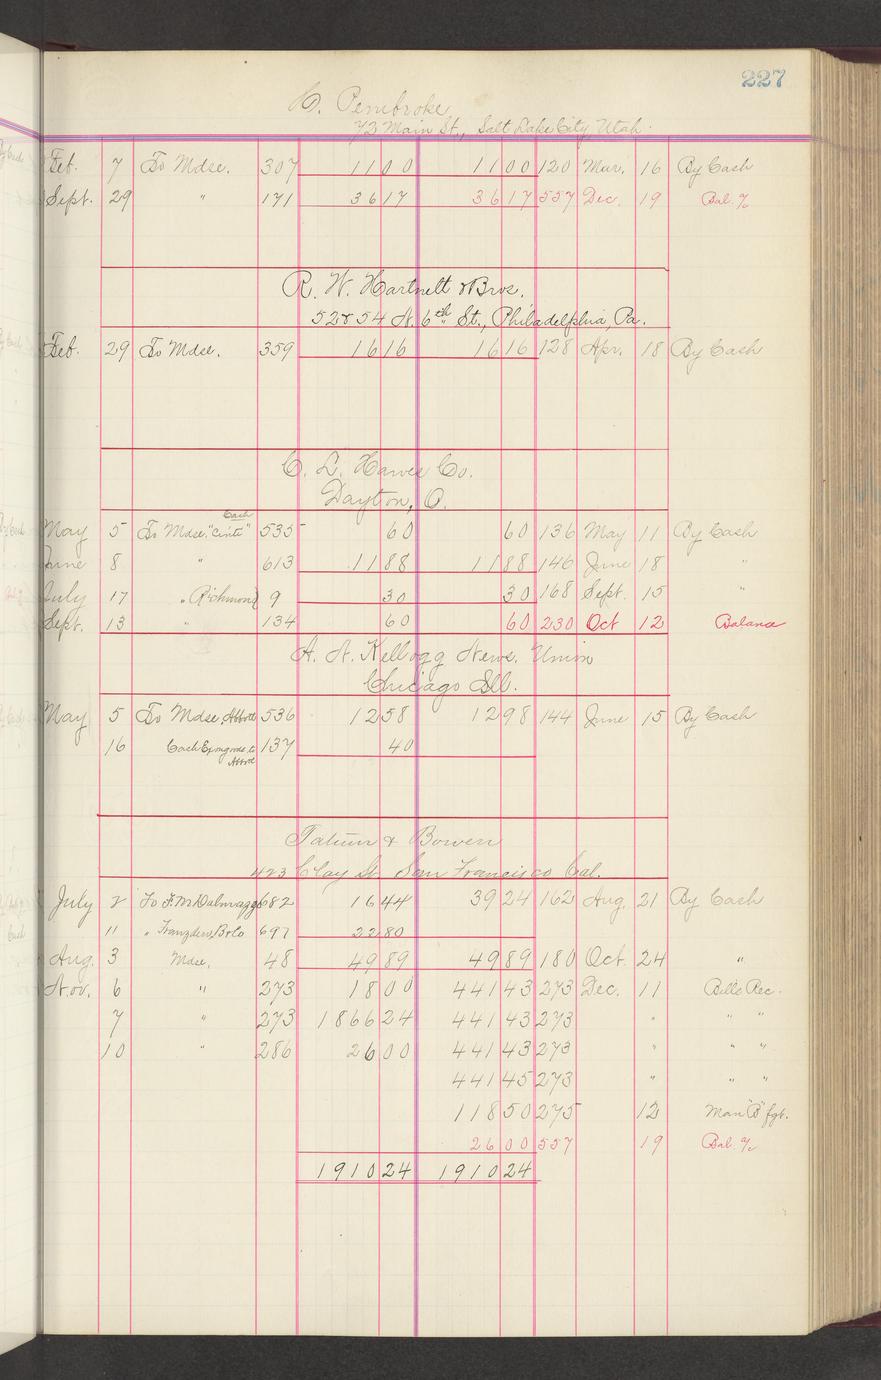 227
C. Pembroke
72 Main St., Salt Lake City, Utah.
Feb. 7 To Mdse. 307 11 00 11 00 120 Mar. 16 By Cash
Sept. 29 " 171 36 17 36 17 557 Dec. 19 Bal. %
R. W. Hartnett & Bros.
52 & 54 N. 6th St., Philadelphia, Pa.
Feb. 29 To Mdse. 359 16 16 16 16 128 Apr. 18 By Cash
C. L. Hawes Co.
Dayton, O.
Cash
May 5 To Mdse. "Cinti" 535 60 60 136 May 11 By Cash
June 8 " 613 11 88 11 88 146 June 18 "
July 17 " Richmond 9 30 30 168 Sept. 15 "
Sept. 13 " 134 60 60 230 Oct 12 Balance
A. N. Kellogg News. Union
Chicago Ill.
May 5 To Mdse. 536 12 58 12 98 144 June 15 By Cash
16 Cash 137 40
Tatum & Bowen
423 Clay St. San Francisco Cal.
July 2 To F. McDalmagg 682 16 44 39 24 162 Aug. 21 By Cash
11 " 697 22 80
Aug. 3 Mdse. 48 49 89 49 89 180 Oct. 24 "
Nov. 6 " 273 18 00 441 43 273 Dec. 11 Bills Rec.
7 " 273 1866 24 441 43 273 " " "
10 " 286 26 00 441 43 273 " " "
441 45 273 " " "
118 50 275 12 Man "B" fgt.
26 00 557 19 Bal. %
1910 24 1910 24